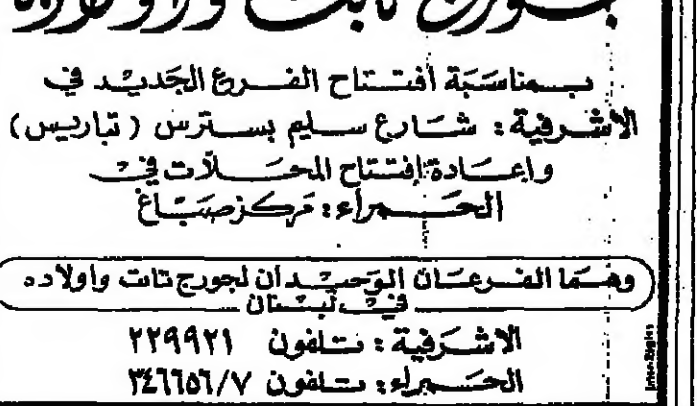 جورج تابت واولاده
بمناسبة افتتاح الفرع الجديد في
الاشرفية: شارع سليم بسترس (تباريس)
واعادة إفتتاح المحلات في
الحمراء: مركز صباغ
وهما الفرعان الوحيدان لجورج تابت واولاده
في لبنان
الاشرفية: تلفون ٢٢٩٩٢١
الحمراء: تلفون ٣٤٦٦٥٦/٧